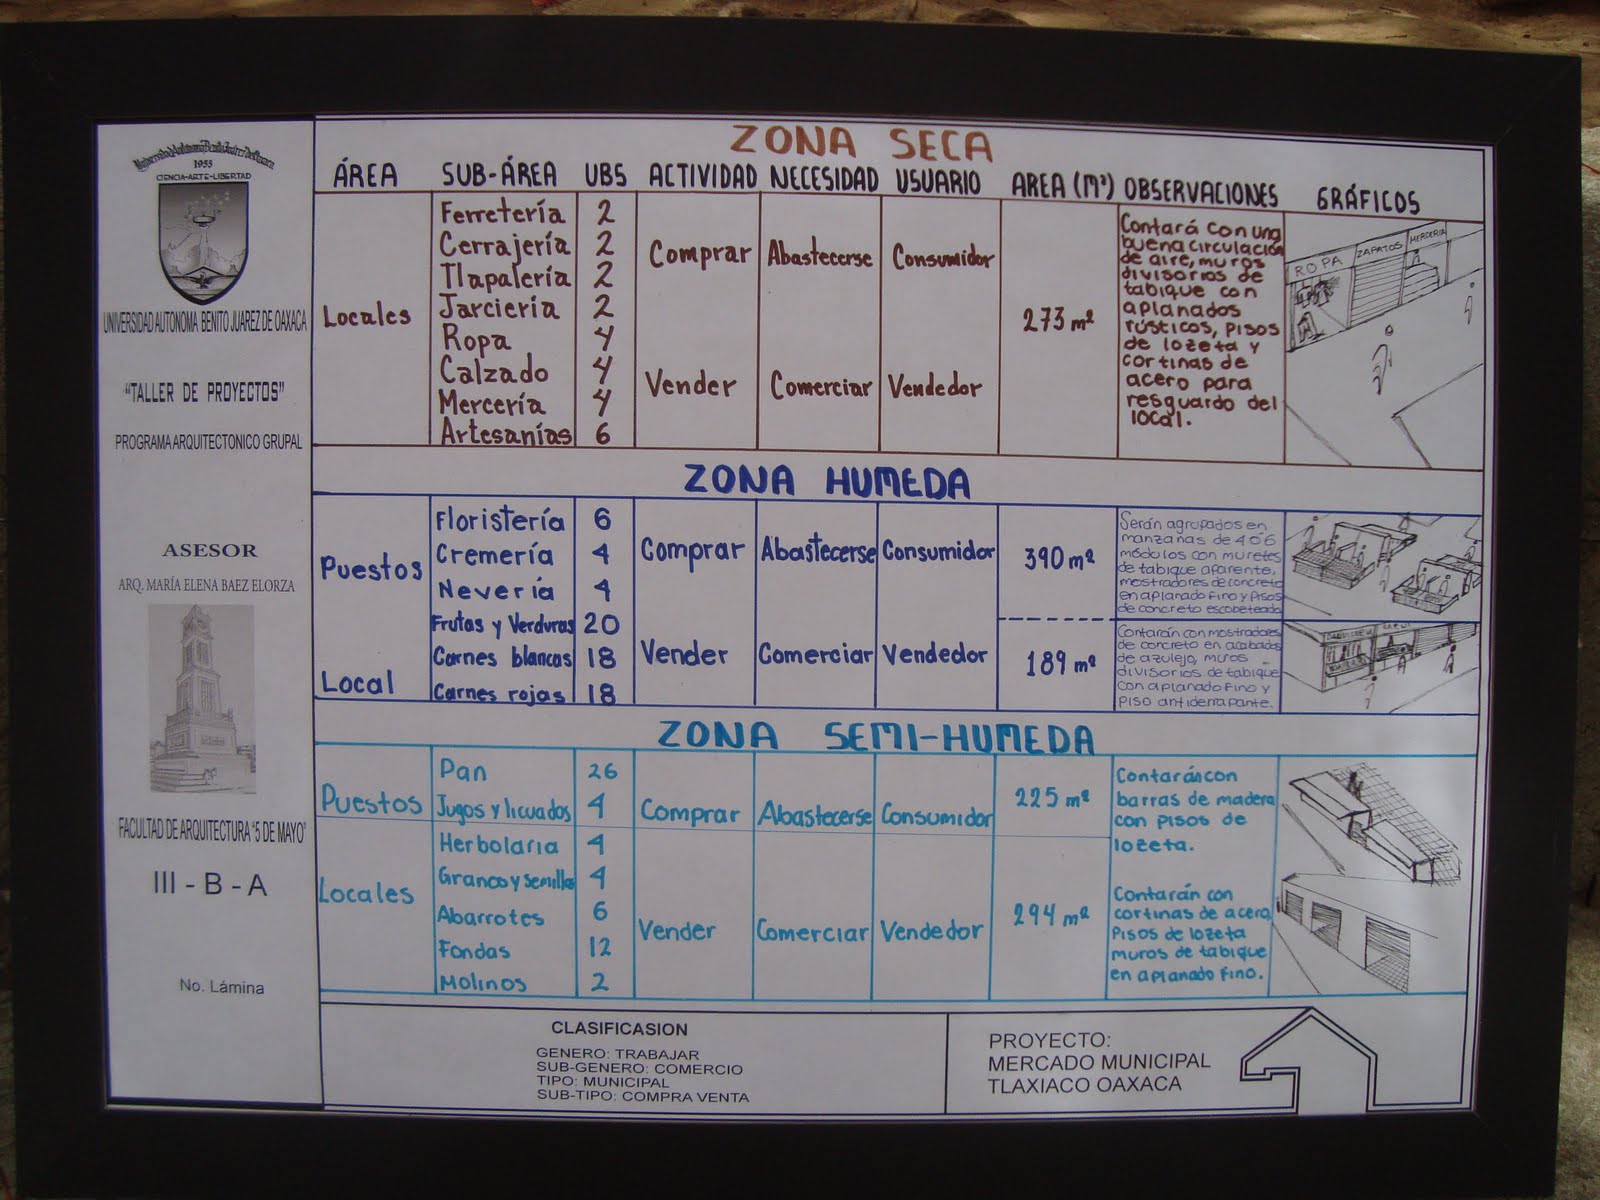 Universidad Autónoma Benito Juárez de Oaxaca
1955
CIENCIA-ARTE-LIBERTAD
UNIVERSIDAD AUTONOMA BENITO JUAREZ DE OAXACA
"TALLER DE PROYECTOS"
PROGRAMA ARQUITECTONICO GRUPAL
ASESOR
ARQ. MARÍA ELENA BAEZ ELORZA
FACULTAD DE ARQUITECTURA "5 DE MAYO"
III - B - A
No. Lámina
ZONA SECA
ÁREA SUB-ÁREA UBS ACTIVIDAD NECESIDAD USUARIO AREA (M²) OBSERVACIONES GRÁFICOS
Locales
Ferretería 2
Cerrajería 2
Tlapalería 2
Jarciería 2
Ropa 4
Calzado 4
Mercería 4
Artesanías 6
Comprar Abastecerse Consumidor
Vender Comerciar Vendedor
273 m²
Contará con una
buena circulación
de aire, muros
divisorios de
tabique con
aplanados
rústicos, pisos
de lozeta y
cortinas de
acero para
resguardo del
local.
ROPA ZAPATOS MERCERIA
ZONA HUMEDA
Puestos
Local
Floristería 6
Cremería 4
Nevería 4
Frutas y Verduras 20
Carnes blancas 18
Carnes rojas 18
Comprar Abastecerse Consumidor
Vender Comerciar Vendedor
390 m²
189 m²
Serán agrupados en
manzanas de 4 o 6
módulos con muretes
de tabique aparente,
mostradores de concreto
en aplanado fino y pisos
de concreto escobeteado
Contarán con mostradores
de concreto en acabados
de azulejo, muros
divisorios de tabique
con aplanado fino y
piso antiderrapante.
ZONA SEMI-HUMEDA
Puestos
Locales
Pan 26
Jugos y licuados 4
Herbolaria 4
Granos y semillas 4
Abarrotes 6
Fondas 12
Molinos 2
Comprar Abastecerse Consumidor
Vender Comerciar Vendedor
225 m²
294 m²
Contarán con
barras de madera
con pisos de
lozeta.
Contarán con
cortinas de acero
pisos de lozeta
muros de tabique
en aplanado fino.
CLASIFICASION
GENERO: TRABAJAR
SUB-GENERO: COMERCIO
TIPO: MUNICIPAL
SUB-TIPO: COMPRA VENTA
PROYECTO:
MERCADO MUNICIPAL
TLAXIACO OAXACA